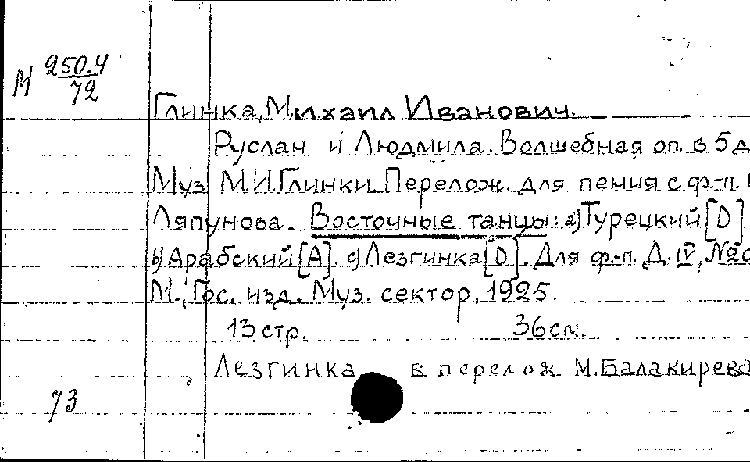 М 250.4
72
Глинка, Михаил Иванович.
Руслан и Людмила. Волшебная оп. в 5 д
Муз. М.И.Глинки. Перелож. для пения с ф-п
Ляпунова. Восточные танцы: а) Турецкий [D]
в) Арабский [A]. с) Лезгинка [D]. Для ф-п. Д. IV, №20
М., Гос. изд. Муз. сектор, 1925.
13 стр. 36 см.
Лезгинка в перелож. М.Балакирева
73